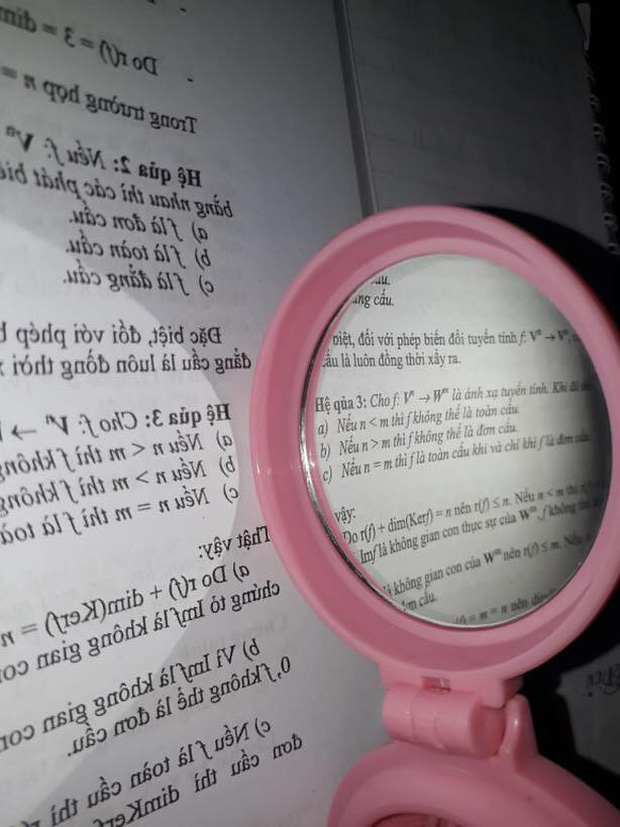 Do r(f) = 3 = dim
Trong trường hợp n =
Hệ qủa 2: Nếu f: Vⁿ
bằng nhau thì các phát biể
a) f là đơn cấu.
b) f là toàn cấu.
c) f là đẳng cấu.
Đặc biệt, đối với phép b
đẳng cấu là luôn đồng thời
Hệ qủa 3: Cho f: Vⁿ →
a) Nếu n < m thì f không
b) Nếu n > m thì f không
c) Nếu n = m thì f là toà
Thật vậy:
a) Do r(f) + dim(Kerf) = n
chứng tỏ Imf là không gian con
b) Vì Imf là không gian con
0, f không thể là đơn cấu.
c) Nếu f là toàn cấu thì
đơn cấu thì dimKerf
ấu.
ẳng cấu.
biệt, đối với phép biến đổi tuyến tính f: Vⁿ → Vⁿ,
cấu là luôn đồng thời xảy ra.
Hệ qủa 3: Cho f: Vⁿ → Wᵐ là ánh xạ tuyến tính. Khi đó
a) Nếu n < m thì f không thể là toàn cấu.
b) Nếu n > m thì f không thể là đơn cấu.
c) Nếu n = m thì f là toàn cấu khi và chỉ khi f là đơn cấu
vậy:
Do r(f) + dim(Kerf) = n nên r(f) ≤ n. Nếu n < m thì
Imf là không gian con thực sự của Wᵐ, f không thể
là không gian con của Wᵐ nên r(f) ≤ m. Nếu
đơn cấu.
= m = n nên